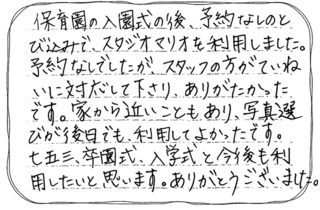 保育園の入園式の後、予約なしのと
び込みで、スタジオマリオを利用しました。
予約なしでしたが、スタッフの方がていね
いに対応して下さり、ありがたかった
です。家から近いこともあり、写真選
びが後日でも、利用してよかったです。
七五三、卒園式、入学式と今後も利
用したいと思います。ありがとうございました。